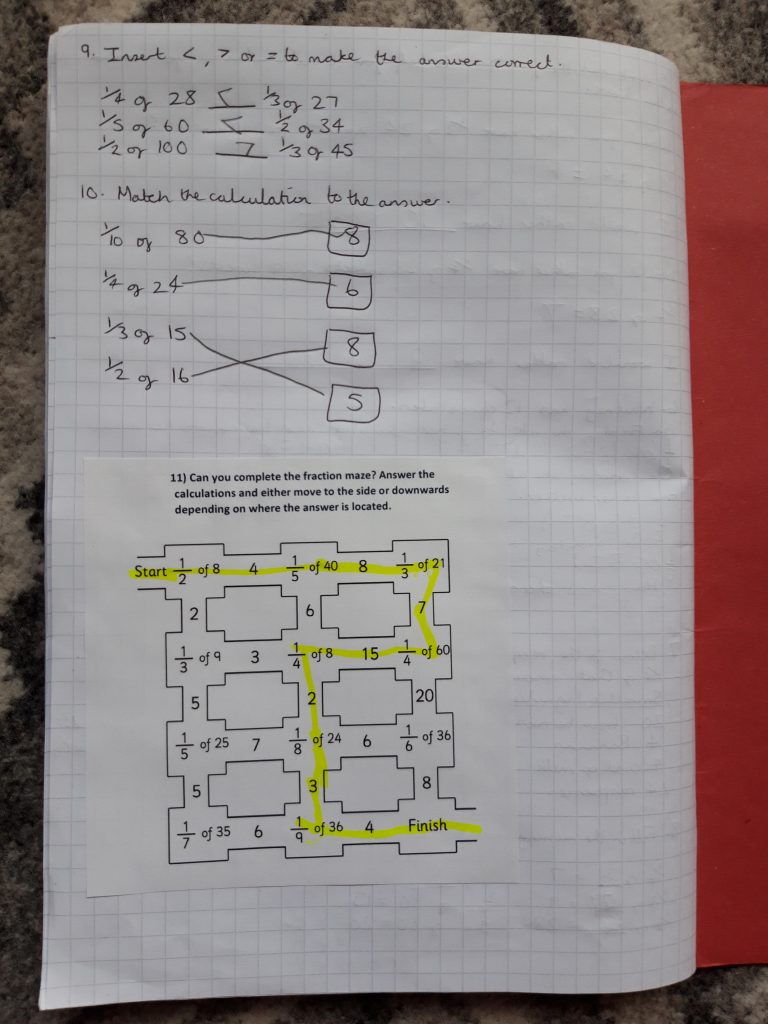 9. Insert <, > or = to make the answer correct.
1/4 of 28 < 1/3 of 27
1/5 of 60 < 1/2 of 34
1/2 of 100 > 1/3 of 45
10. Match the calculation to the answer.
1/10 of 80 8
1/4 of 24 6
1/3 of 15 8
1/2 of 16
5
11) Can you complete the fraction maze? Answer the
calculations and either move to the side or downwards
depending on where the answer is located.
Start 1/2 of 8 4 1/5 of 40 8 1/3 of 21
2 6 7
1/3 of 9 3 1/4 of 8 15 1/4 of 60
5 2 20
1/5 of 25 7 1/8 of 24 6 1/6 of 36
5 3 8
1/7 of 35 6 1/9 of 36 4 Finish